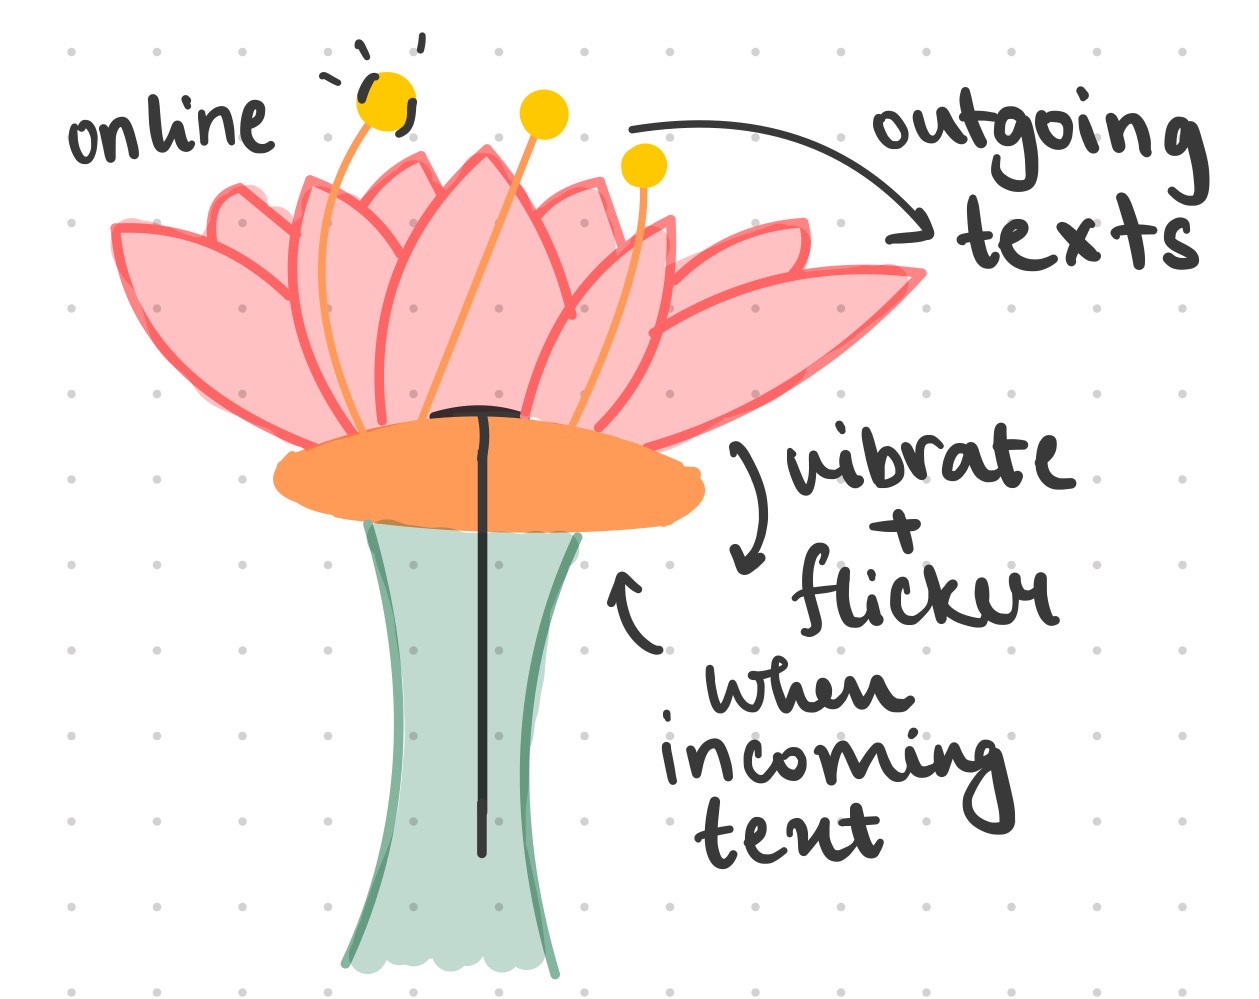 online
outgoing
texts
vibrate
+
flicker
when
incoming
text